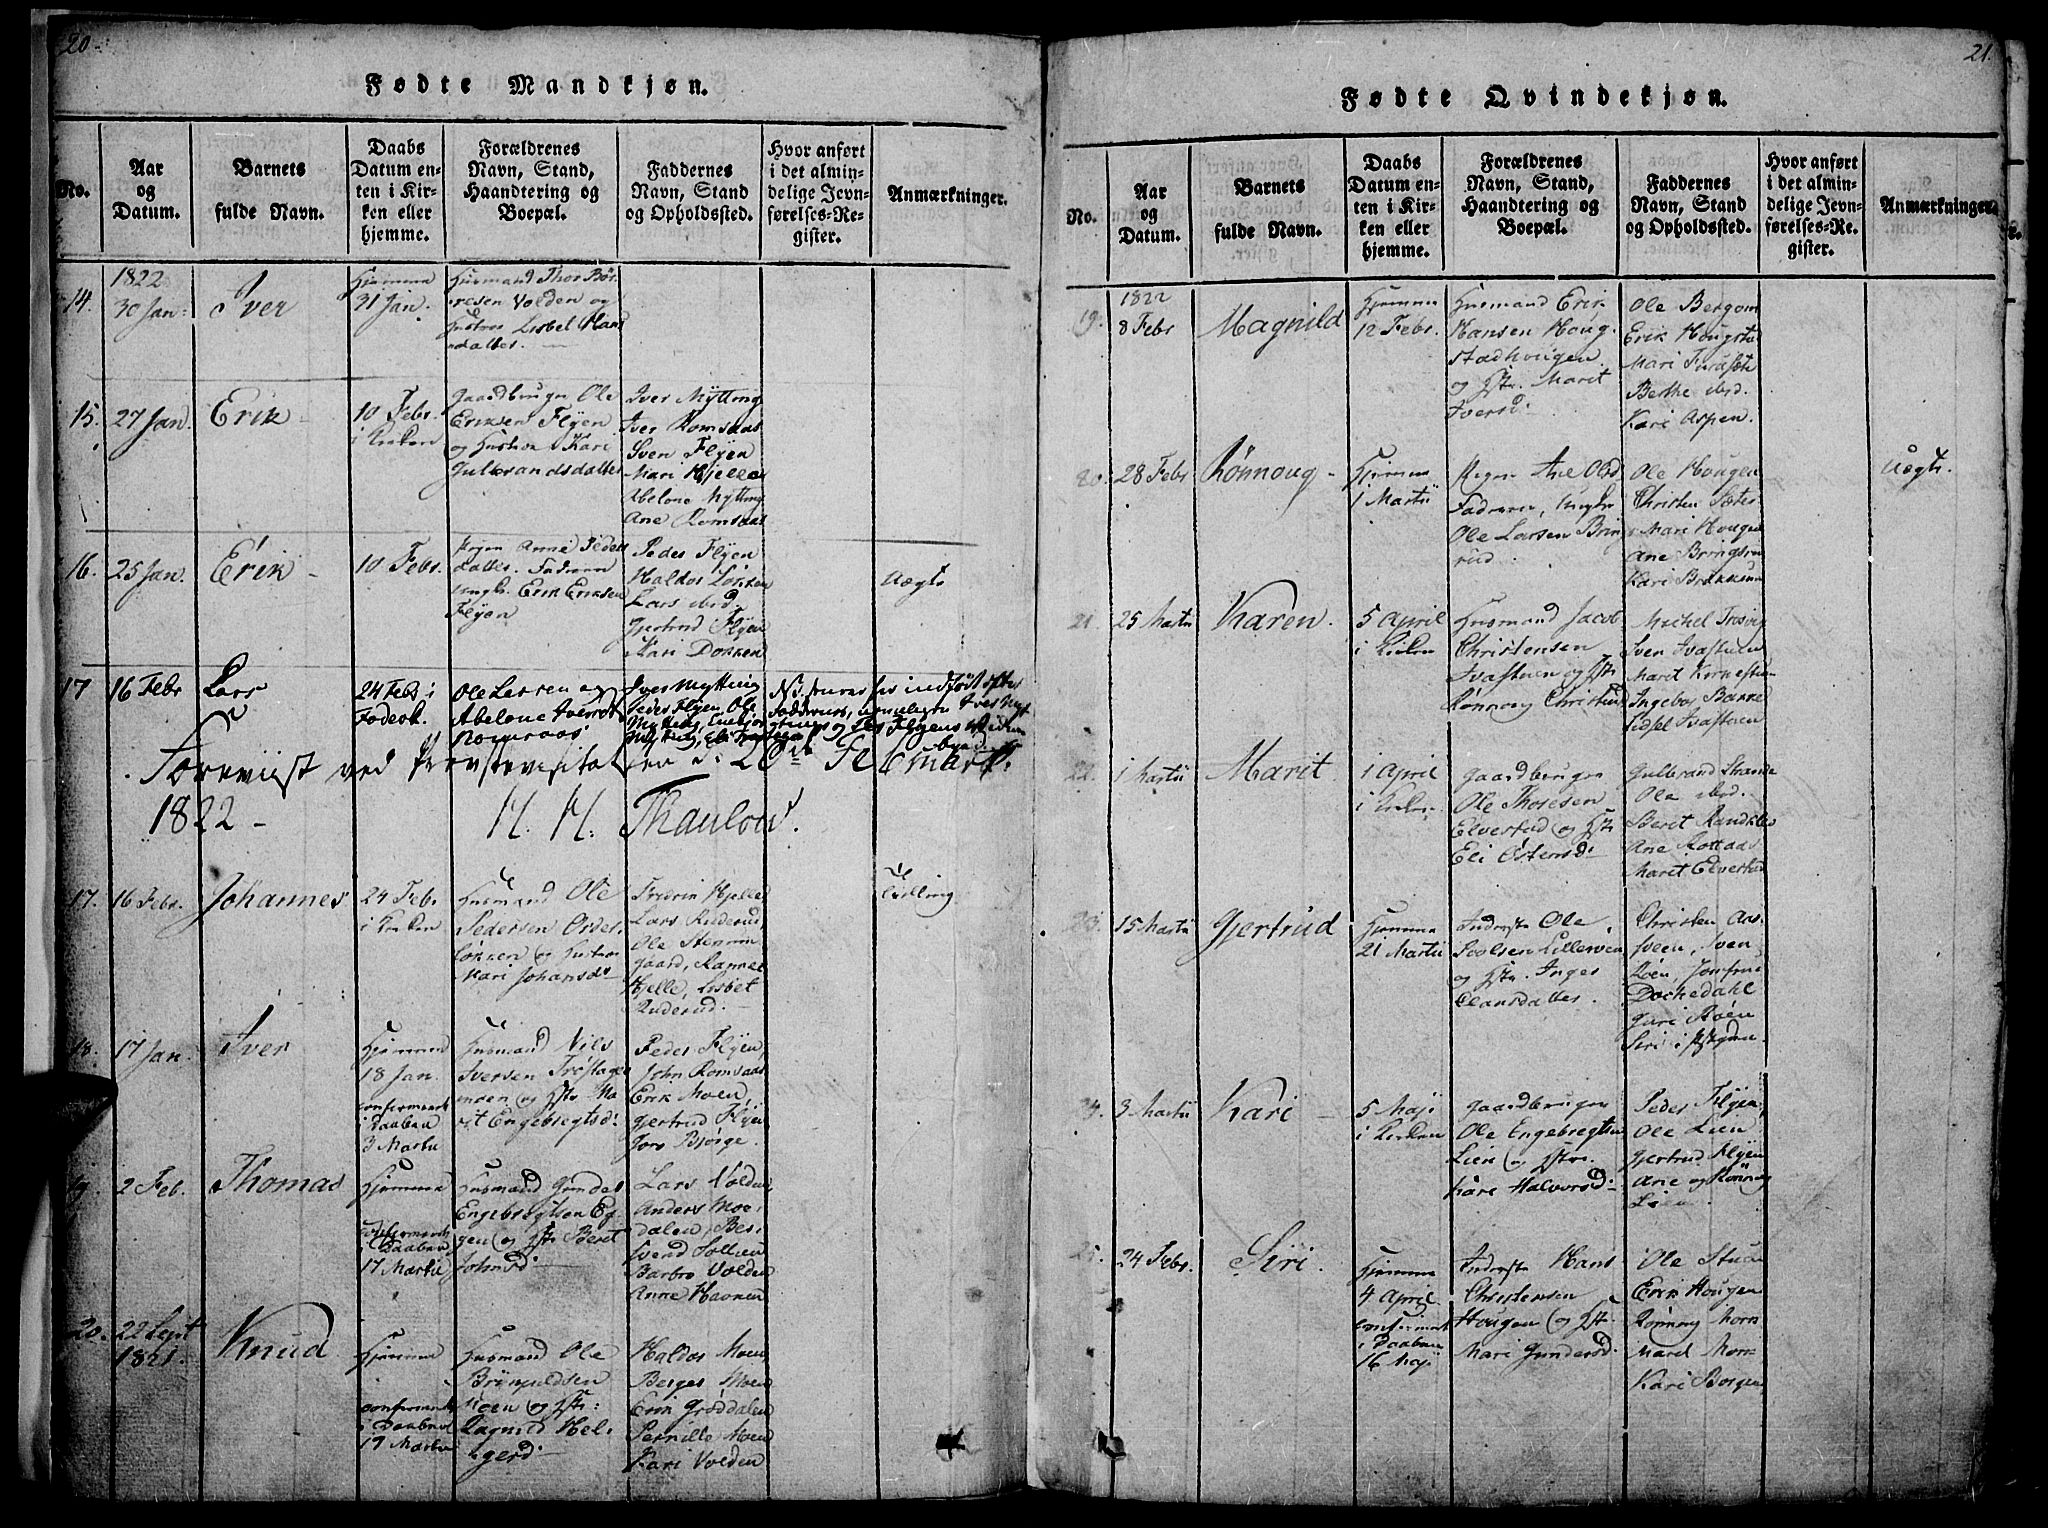 20
Fødte Mandkjøn.
No.
Aar
og
Datum.
Barnets
fulde Navn.
Daabs
Datum en-
ten i Kir-
ken eller
hjemme.
Forældrenes
Navn, Stand,
Haandtering og
Boepæl.
Faddernes
Navn, Stand
og Opholdssted.
Hvor anført
i det almin-
delige Jevn-
førelses-Re-
gister.
Anmærkninger.
14.
1822
30 Jan:
Iver
Hjemme
31 Jan.
Husmand Thor Bör-
resen Volden og
Hustroe Lisbet Hans
datter.
15.
27 Jan.
Erik
10 Febr.
i Kirken
Gaardbruger Ole
Eriksen Flÿen
og Hustroe Kari
Gulbrandsdatter
Iver Mÿtting
Iver Romsaas
Sven Flÿen
Mari Hjelle
Abelone Mÿtting
Ane Romsaas
16.
25 Jan.
Erik
10 Febr.
Pigen Anne Peders
datter. Faderen
Ungk. Erik Eriksen
Flÿen
Peder Flÿen
Haldor Løkken
Lars ibid.
Gjertrud Flÿen
Kari Dokken
Uægte
17
16 Febr
Lars
24 Febr i
Ole Larsen og
Abelone Iversdr
Romsaas
Iver Mytting
Peder Flyen Ole
Foreviist ved Provstevisitatsen d: 20de Februar
1822
H. H. Thaulow.
17.
16 Febr.
Johannes
24 Febr
i Kirken
Husmand Ole
Pedersen Ordes
løkken og Hustroe
Mari Johansd:
Fredrik Hjelle
Lars Ruderud
Ole Stemmen
gaard, Rannei
Hjelle, Lisbet
Ruderud.
Tvilling
18.
17 Jan.
Iver
Hjemme
18 Jan.
confirmeret
i Daaben
3 Martii
Husmand Nils
Iversen Trøstager
moen og Hstr Ma
rit Engebregtsd:
Peder Flÿen,
John Romsaas
Erik Moen,
Gjertrud Flÿen
Joro Bjørge.
19.
2 Feb.
Thomas
Hjemme
confirmeret
i Daaben
17 Martii
Husmand Gunder
Engebregtsen Eg
gen og Hstr Beret
Johnsd:
Lars Volden,
Anders Moe-
dalen, Ber-
svend Sollien
Barbro Volden
Anne Havnen
20.
22 Sept
1821.
Knud
Hjemme
confirmeret
i Daaben
19 Martii
Husmand Ole
Brÿnjuldsen
Moen og Hstr:
Ragnild Hel-
gerd.
Haldor Moen,
Berger Moen
Erik Grøddalen
Pernille Moen
Kari Volden
21.
Fødte Qvindekjøn.
No.
Aar
og
Datum.
Barnets
fulde Navn.
Daabs
Datum en-
ten i Kir-
ken eller
hjemme.
Forældrenes
Navn, Stand,
Haandtering og
Boepæl.
Faddernes
Navn, Stand
og Opholdssted.
Hvor anført
i det almin-
delige Jevn-
førelses-Re-
gister.
Anmærkninger.
19.
1822
8 Febr
Magnild
Hjemme
12 Febr.
Husmand Erik
Hansen Houg-
stadhougen
og Hstr. Marit
Iversd:
Ole Bergom
Erik Hougsta
Mari Furusæte
Berthe ibid.
Kari Aspen.
20.
28 Febr
Rönnoug
Hjemme
1 Martii
Pigen Ane Olsd
Faderen, Ungkr
Ole Larsen Bring
rud
Ole Hougen
Christen Sæter
Mari Hougen
Ane Bringsrud
Kari Brækken
Uægte.
21.
25 Martii
Karen.
5 April
i Kirken
Husmand Jacob
Christensen
Ivastuen og Hstr
Rønnoug Christensd
Michel Trosvig
Sven Ivastuen
Marit Kornestuen
Ingebor Bakke
Sidsel Ivastuen
22.
1 Martii
Marit.
1 April
i Kirken
Gaardbruger
Ole Thoresen
Elverstad og Hstr
Eli Østensd:
Gulbrand Strande
Ole ibid.
Berit Randklev
Ane Rottaas
Marit Elverstad
23.
15 Martii
Gjertrud
Hjemme
21 Martii
Inderste Ole
Poulsen Lilleroen
og Hstr. Inger
Clausdatter.
Christen Aas-
sveen, Sven
Roen, Jomfrue
Dockedahl
Guri Moen
24.
3 Martii
Kari
5 Maji
i Kirken
Gaardbruger
Ole Engebregtsen
Lien og Hstr.
Kari Halvorsd:
Peder Flÿen,
Ole Lien
Gjertrud Flÿen
Ane og Rønnoug
Lien
25.
24 Febr.
Siri.
Hjemme
4 April
confirmert
i Daaben
16 Maji
Inderste Hans
Christensen
Hougen og Hstr.
Mari Gundersd:
Ole Stuen
Erik Hougen
Rønnoug Horn
Marit Horn
Kari Borgen